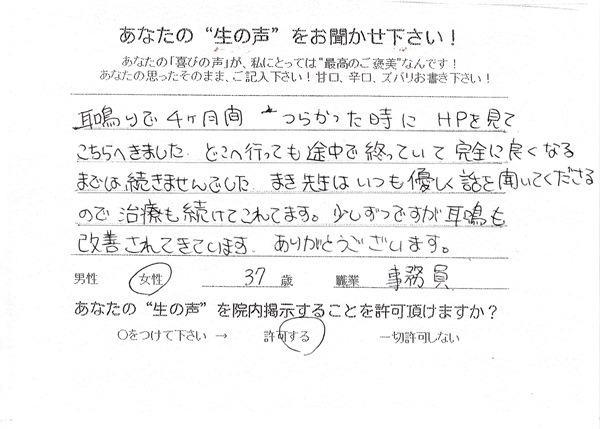 あなたの“生の声”をお聞かせ下さい！
あなたの「喜びの声」が、私にとっては“最高のご褒美”なんです！
あなたの思ったそのまま、ご記入下さい！甘口、辛口、ズバリお書き下さい！
耳鳴りで4ヶ月間 つらかった時に HPを見て
こちらへきました。どこへ行っても途中で終っていて完全に良くなる
までは続きませんでした。まき先生はいつも優しく話を聞いてくださる
ので治療も続けてこれてます。少しずつですが耳鳴も
改善されてきています。ありがとうございます。
男性 女性 37 歳 職業 事務員
あなたの“生の声”を院内掲示することを許可頂けますか？
○をつけて下さい → 許可する 一切許可しない